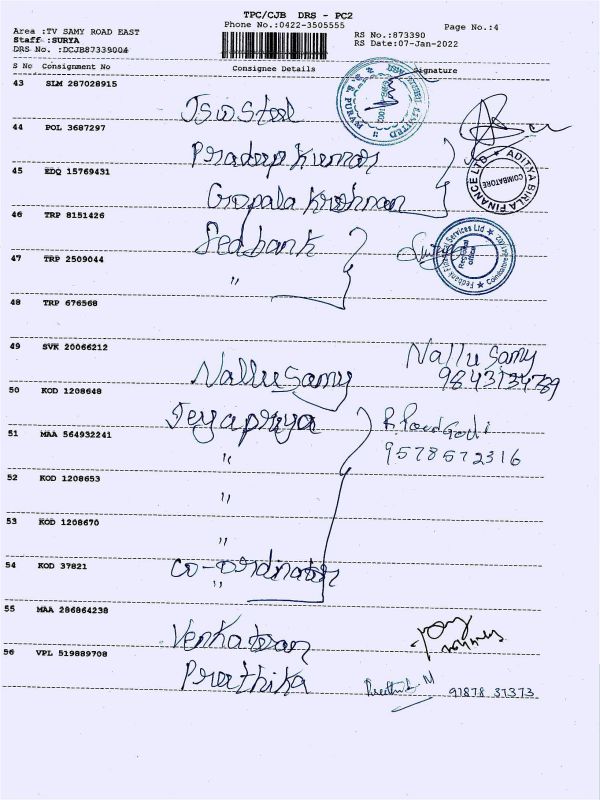 TPC/CJB DRS - PC2
Phone No.:0422-3505555
Page No.:4
Area :TV SAMY ROAD EAST
Staff :SURYA
DRS No. :DCJB87339004
RS No.:873390
RS Date:07-Jan-2022
S No Consignment No Consignee Details Signature
43 SLM 287028915
Jsw Steel
44 POL 3687297
Pradeep Kumar
45 EDQ 15769431
ADITYA BIRLA FINANCE LTD
COIMBATORE
Gopala Krishnan
46 TRP 8151426
Fedbank
Fedbank Financial Services Ltd
Regional Office
47 TRP 2509044
"
48 TRP 676568
49 SVK 20066212
Nallu Samy
Nallu Samy
50 KOD 1208648
Jeyapriya
51 MAA 564932241
9578572316
"
52 KOD 1208653
"
53 KOD 1208670
"
54 KOD 37821
Co-ordinator
"
55 MAA 286864238
Venkatesan
56 VPL 519889708
Preathika
91878 37373